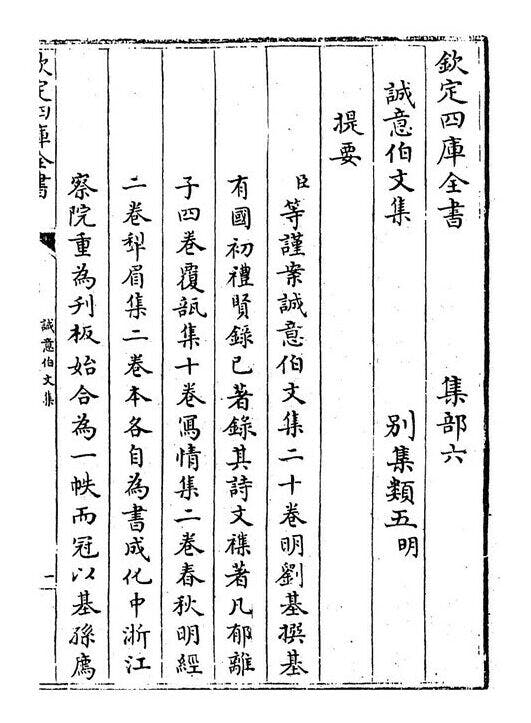 欽定四庫全書 集部六
誠意伯文集 別集類五明
提要
臣等謹案誠意伯文集二十卷明劉基撰基
有國初禮賢錄已著錄其詩文襍著凡郁離
子四卷覆瓿集十卷寫情集二卷春秋明經
二卷犂眉集二卷本各自為書成化中浙江
察院重為刋板始合為一帙而冠以基孫廌
欽定四庫全書
誠意伯文集
一